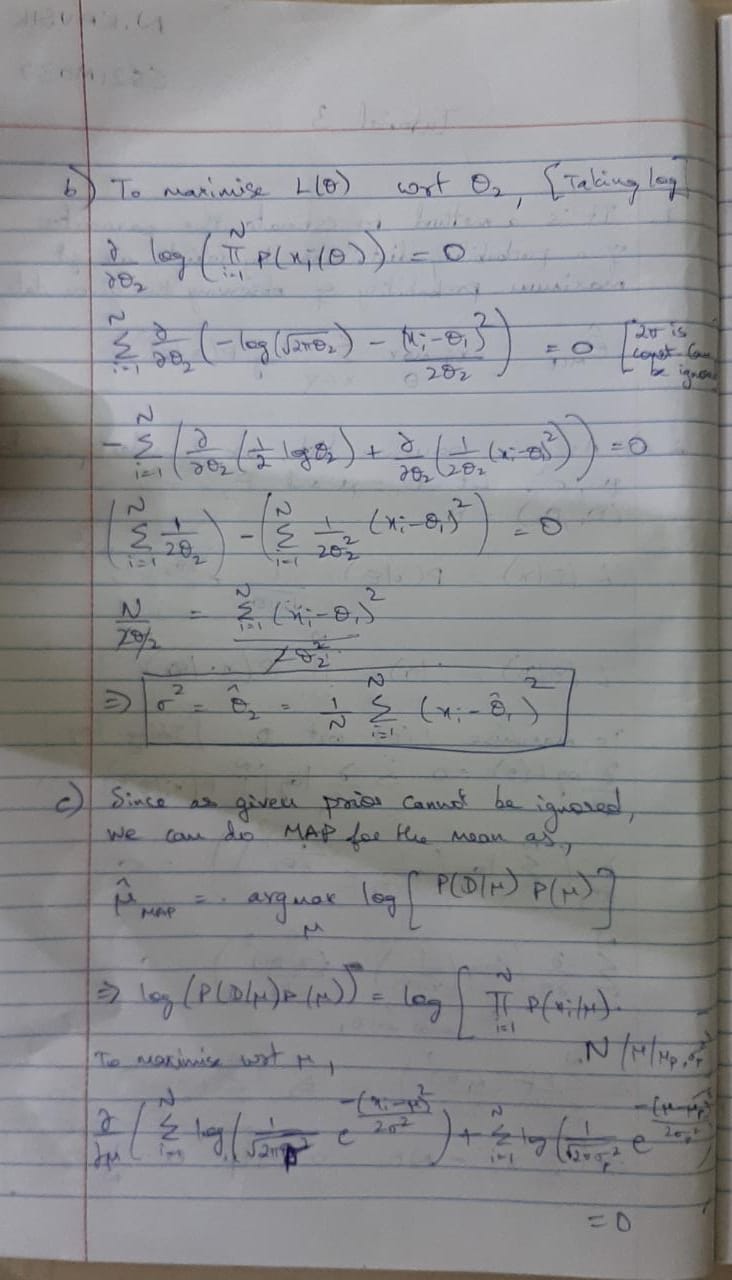 b) To maximise L(θ) wrt θ₂, [Taking log]
∂/∂θ₂ log ( ∏_{i=1}^{N} P(x_i|θ) ) = 0
∑_{i=1}^{N} ∂/∂θ₂ ( -log(√2πθ₂) - (x_i-θ₁)²/2θ₂ ) = 0 [2π is const can be ignore
- ∑_{i=1}^{N} ( ∂/∂θ₂ ( 1/2 log θ₂ ) + ∂/∂θ₂ ( 1/2θ₂ (x_i-θ₁)² ) ) = 0
( ∑_{i=1}^{N} 1/2θ₂ ) - ( ∑_{i=1}^{N} 1/2θ₂² (x_i-θ₁)² ) = 0
N/2θ₂ = ∑_{i=1}^{N} (x_i-θ₁)² / 2θ₂²
⇒ σ² = θ̂₂ = 1/N ∑_{i=1}^{N} (x_i - θ̂₁)²
c) Since as given prior cannot be ignored,
we can do MAP for the mean as,
μ̂_MAP = argmax_μ log [ P(D|μ) P(μ) ]
⇒ log (P(D|μ) P(μ)) = log [ ∏_{i=1}^{N} P(x_i|μ).
N(μ|μ_p, σ_p²
To maximise wrt μ,
∂/∂μ ( ∑_{i=1}^{N} log ( 1/√2π e^{-(x_i-μ)²/2σ²} ) + ∑_{i=1}^{N} log ( 1/√2πσ_p² e^{-(μ-μ_p)²/2σ_p²}
= 0